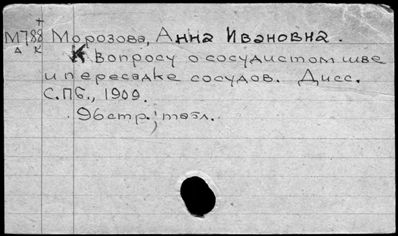 +
М788 Морозова, Анна Ивановна.
А К К вопросу о сосудистом шве
и пересадке сосудов. Дисс.
С.ПБ., 1909.
96стр.; табл.